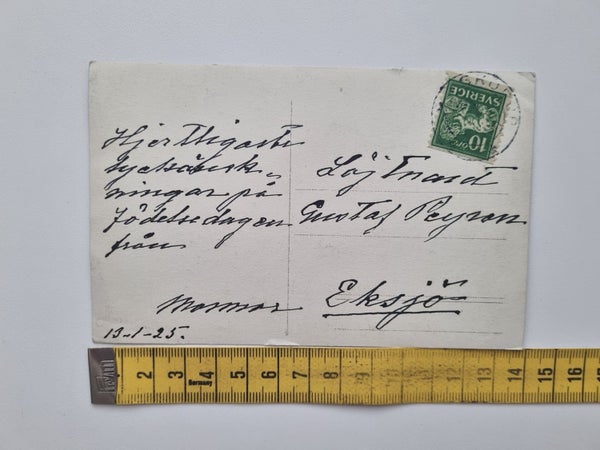 Hjertligaste
lyckönsk-
ningar på
födelsedagen
från
Mormor
13-1-25.
Löjtnant
Gustaf Peyron
Eksjö
SVERIGE
10
ÖRE
1 2 3 4 5 6 7 8 9 10 11 12 13 14 15 16 17
Germany